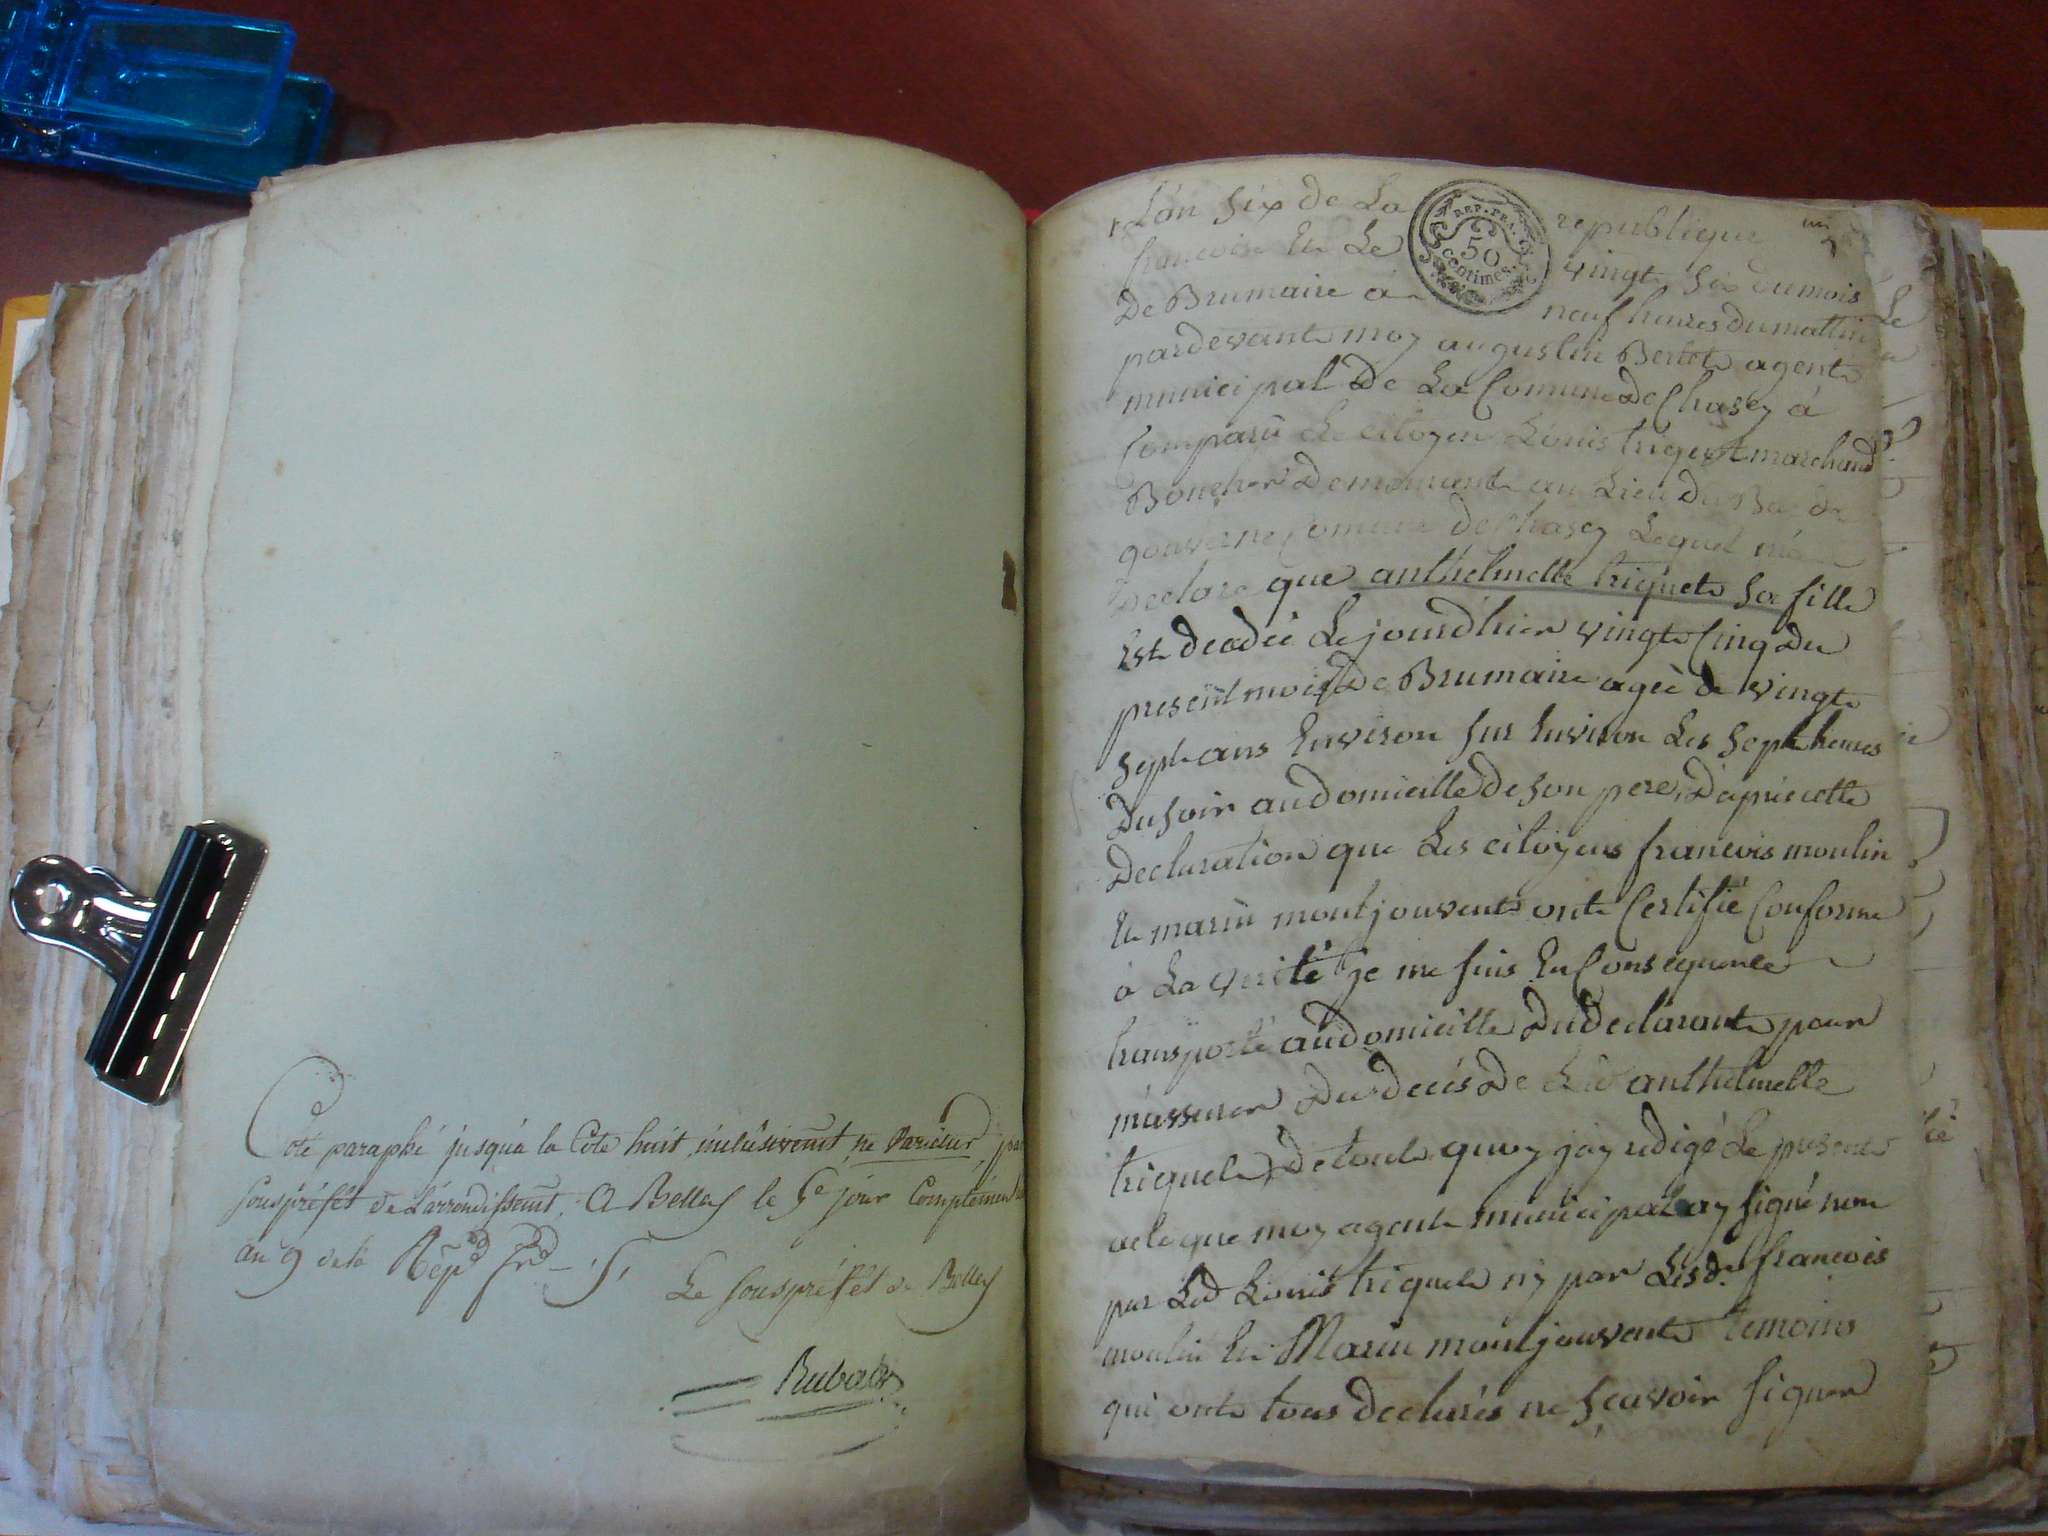 Coté paraphé jusqu'a la Cote huit inclusivemt ne varietur, par
souspréfet de L'arrondissemt. A Belley le 5e jour Complementre
an 9 de la Repe fre
Le souspréfet de Belley
Rubat
L'an six de La republique
francoise Et Le vingt six du mois
De Brumaire à neuf heures du mattin
pardevant moy augustin Bertet agent
municipal De La Comune De Chasey à
Comparu Le citoyen Louis triquet marchand
Boucher Demeurant au Lieu du Bac de
gouverne Comune De Chasey Lequel m'a
Declare que anthelmette triquet sa fille
Est decedée Le jourd'hier vingt Cinq Du
present mois De Brumaire ageé de vingt
sept ans Environ sur Environ Les sept heures
Du soir au domicille de son pere, D'apres cette
Declaration que Les citoyens francois moulin
Et marin montjouvent ont Certifié Conforme
à La verité je me suis En Consequence
transporté au domicille Du declarant pour
m'assurer Du decés De Lad anthelmette
triquet, De tout quoy j'ay redigé Le present
acte que moy agent municipal ay signé non
par Led Louis triquet ny par Lesd. francois
moulin Et Marin montjouvent temoins
qui ont tous declarés ne sçavoir signer
REP. FRA.
50
centimes.